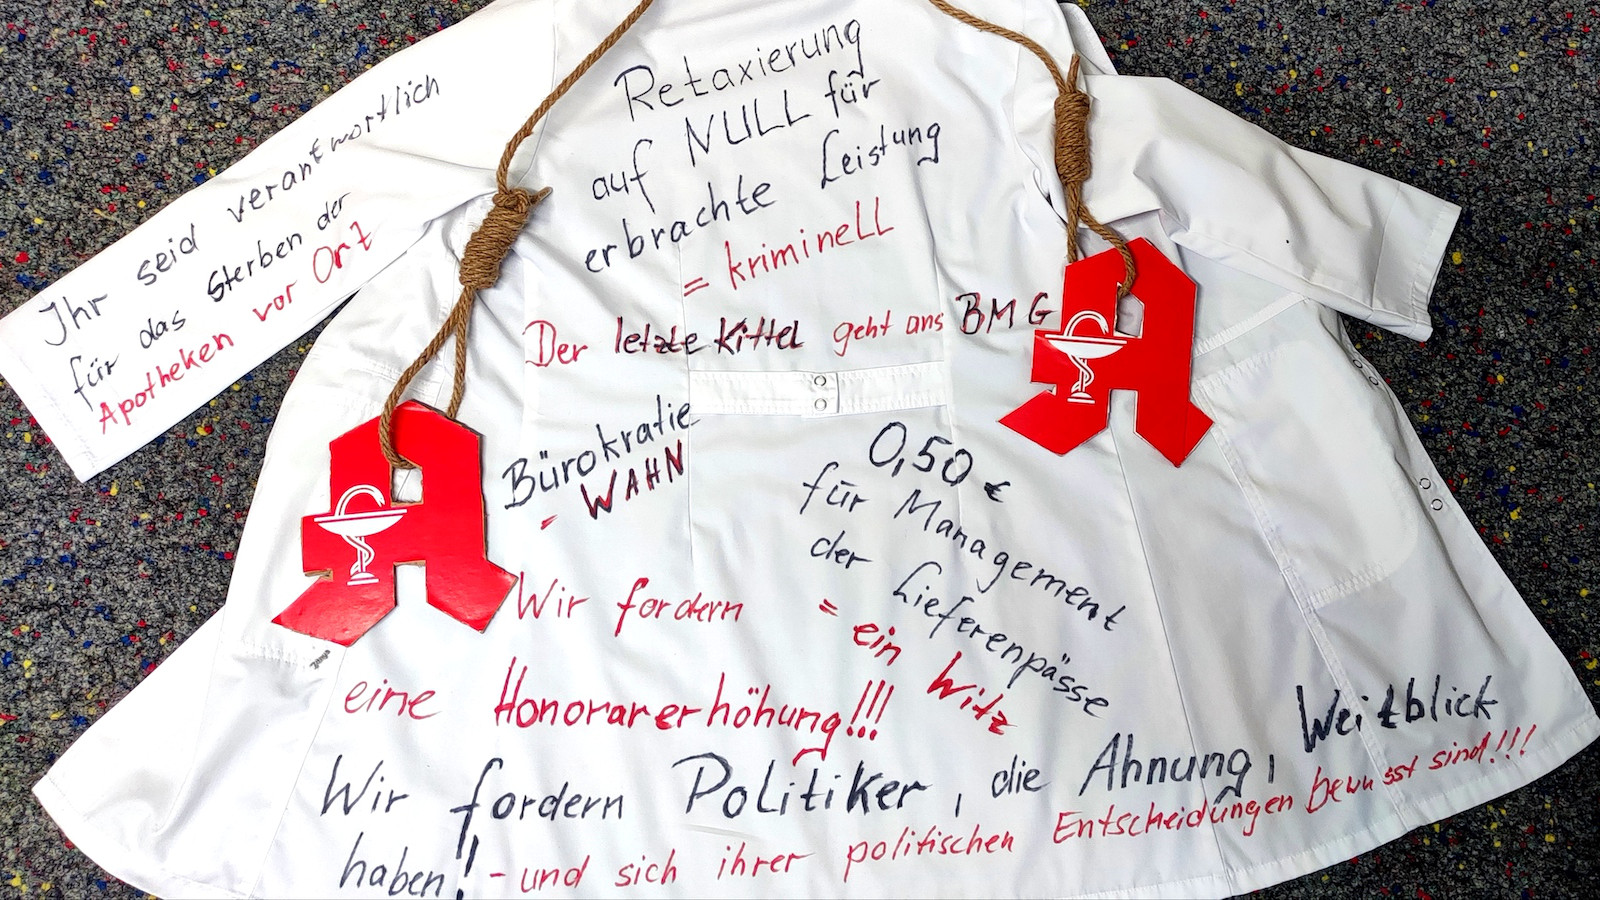 Ihr seid verantwortlich
für das Sterben der
Apotheken vor Ort
Retaxierung
auf NULL für
erbrachte Leistung
= kriminell
Der letzte Kittel geht ans BMG
Bürokratie
- WAHN
0,50 €
für Management
der Lieferenpässe
= ein Witz
Wir fordern
eine Honorarerhöhung!!!
Wir fordern Politiker, die Ahnung, Weitblick
haben!! - und sich ihrer politischen Entscheidungen bewusst sind!!!